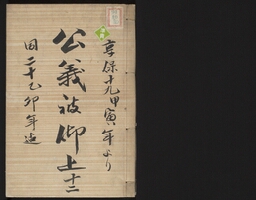 享保十九甲寅年より
公義被仰上十二
同二十乙卯年迄